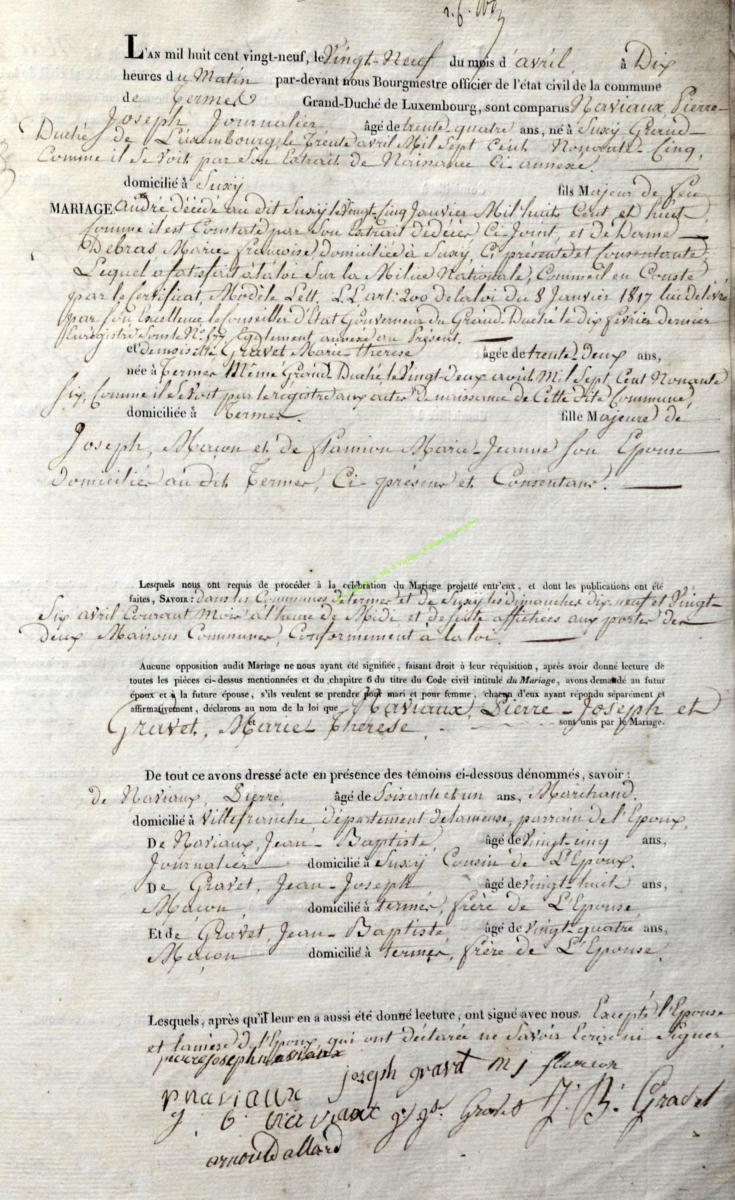 L'AN mil huit cent vingt-neuf, le Vingt-Neuf du mois d'avril, à Dix
heures du Matin par-devant nous Bourgmestre officier de l'état civil de la commune
de Termes Grand-Duché de Luxembourg, sont comparus Naviaux, Pierre-
Joseph Journalier, âgé de trente quatre ans, né à Suxy Grand-
Duché de Luxembourg, le Trente avril Mil Sept Cent Nonante-Cinq,
Comme il se voit par son Extrait de Naissance Ci annexé.
domicilié à Suxy fils Majeur de feu
MARIAGE André décédé au dit Suxy le Vingt-Cinq Janvier Mil huit Cent et huit
Comme il est Constaté par son Extrait de décès Ci Joint, et de Dame
Debras Marie françoise domiciliée à Suxy, Ci présente et Consentante,
Lequel a satisfait à la loi Sur la Milice Nationale, Comme il en Conste
par le Certificat, Modèle Lett. LL art: 200 de la loi du 8 Janvier 1817 lui délivré
par Son Excellence le Conseiller d'Etat Gouverneur du Grand-Duché le dix février dernier
Enregistré Sous le N.° 57, Egalement annexé au Présent.
et demoiselle Gravet Marie therese âgée de trente deux ans,
née à Termes Même Grand Duché, le Vingt-Deux août Mil Sept Cent Nonante
Six, Comme il se Voit par le registre aux actes de naissance de Cette dite Commune,
domiciliée à termes fille Majeure de
Joseph, Maçon et de flamion Marie-Jeanne Son Epouse
domiciliés au dit Termes, Ci présens et Consentans.
Lesquels nous ont requis de procéder à la célébration du Mariage projetté entr'eux, et dont les publications ont été
faites, SAVOIR: dans les Communes de termes et de Suxy les dimanches dix neuf et Vingt-
Six avril Courant Mois à l'heure de Midi et de suite affichées aux portes des
deux Maisons Communes, Conformement à la loi.
Aucune opposition audit Mariage ne nous ayant été signifiée, faisant droit à leur réquisition, après avoir donné lecture de
toutes les pièces ci-dessus mentionnées et du chapitre 6 du titre du Code civil intitulé du Mariage, avons demandé au futur
époux et à la future épouse, s'ils veulent se prendre pour mari et pour femme, chacun d'eux ayant répondu séparément et
affirmativement, déclarons au nom de la loi que Naviaux, Pierre-Joseph et
Gravet, Marie Thérèse. sont unis par le Mariage.
De tout ce avons dressé acte en présence des témoins ci-dessous dénommés, savoir:
de Naviaux, Pierre, âgé de Soixante et un ans, Marchand,
domicilié à Villefranche, Département de la meuse, parrain de l'Epoux,
De Naviaux, Jean-Baptiste, âgé de vingt-cinq ans,
Journalier domicilié à Suxy Cousin de L'Epoux.
De Gravet, Jean-Joseph âgé de vingt-huit ans,
Maçon, domicilié à termes, frère de L'Epouse
Et de Gravet, Jean-Baptiste âgé de vingt-quatre ans,
Maçon domicilié à termes, frère de L'Epouse.
Lesquels, après qu'il leur en a aussi été donné lecture, ont signé avec nous. Excepté l'Epouse
et la mère de l'Epoux qui ont déclarée ne Savoir Ecrire ni Signer
pierre joseph naviaux
joseph gravet m j flamion
P naviaux
j b naviaux gr gr. Gravet J: B: Gravet
arnould allard